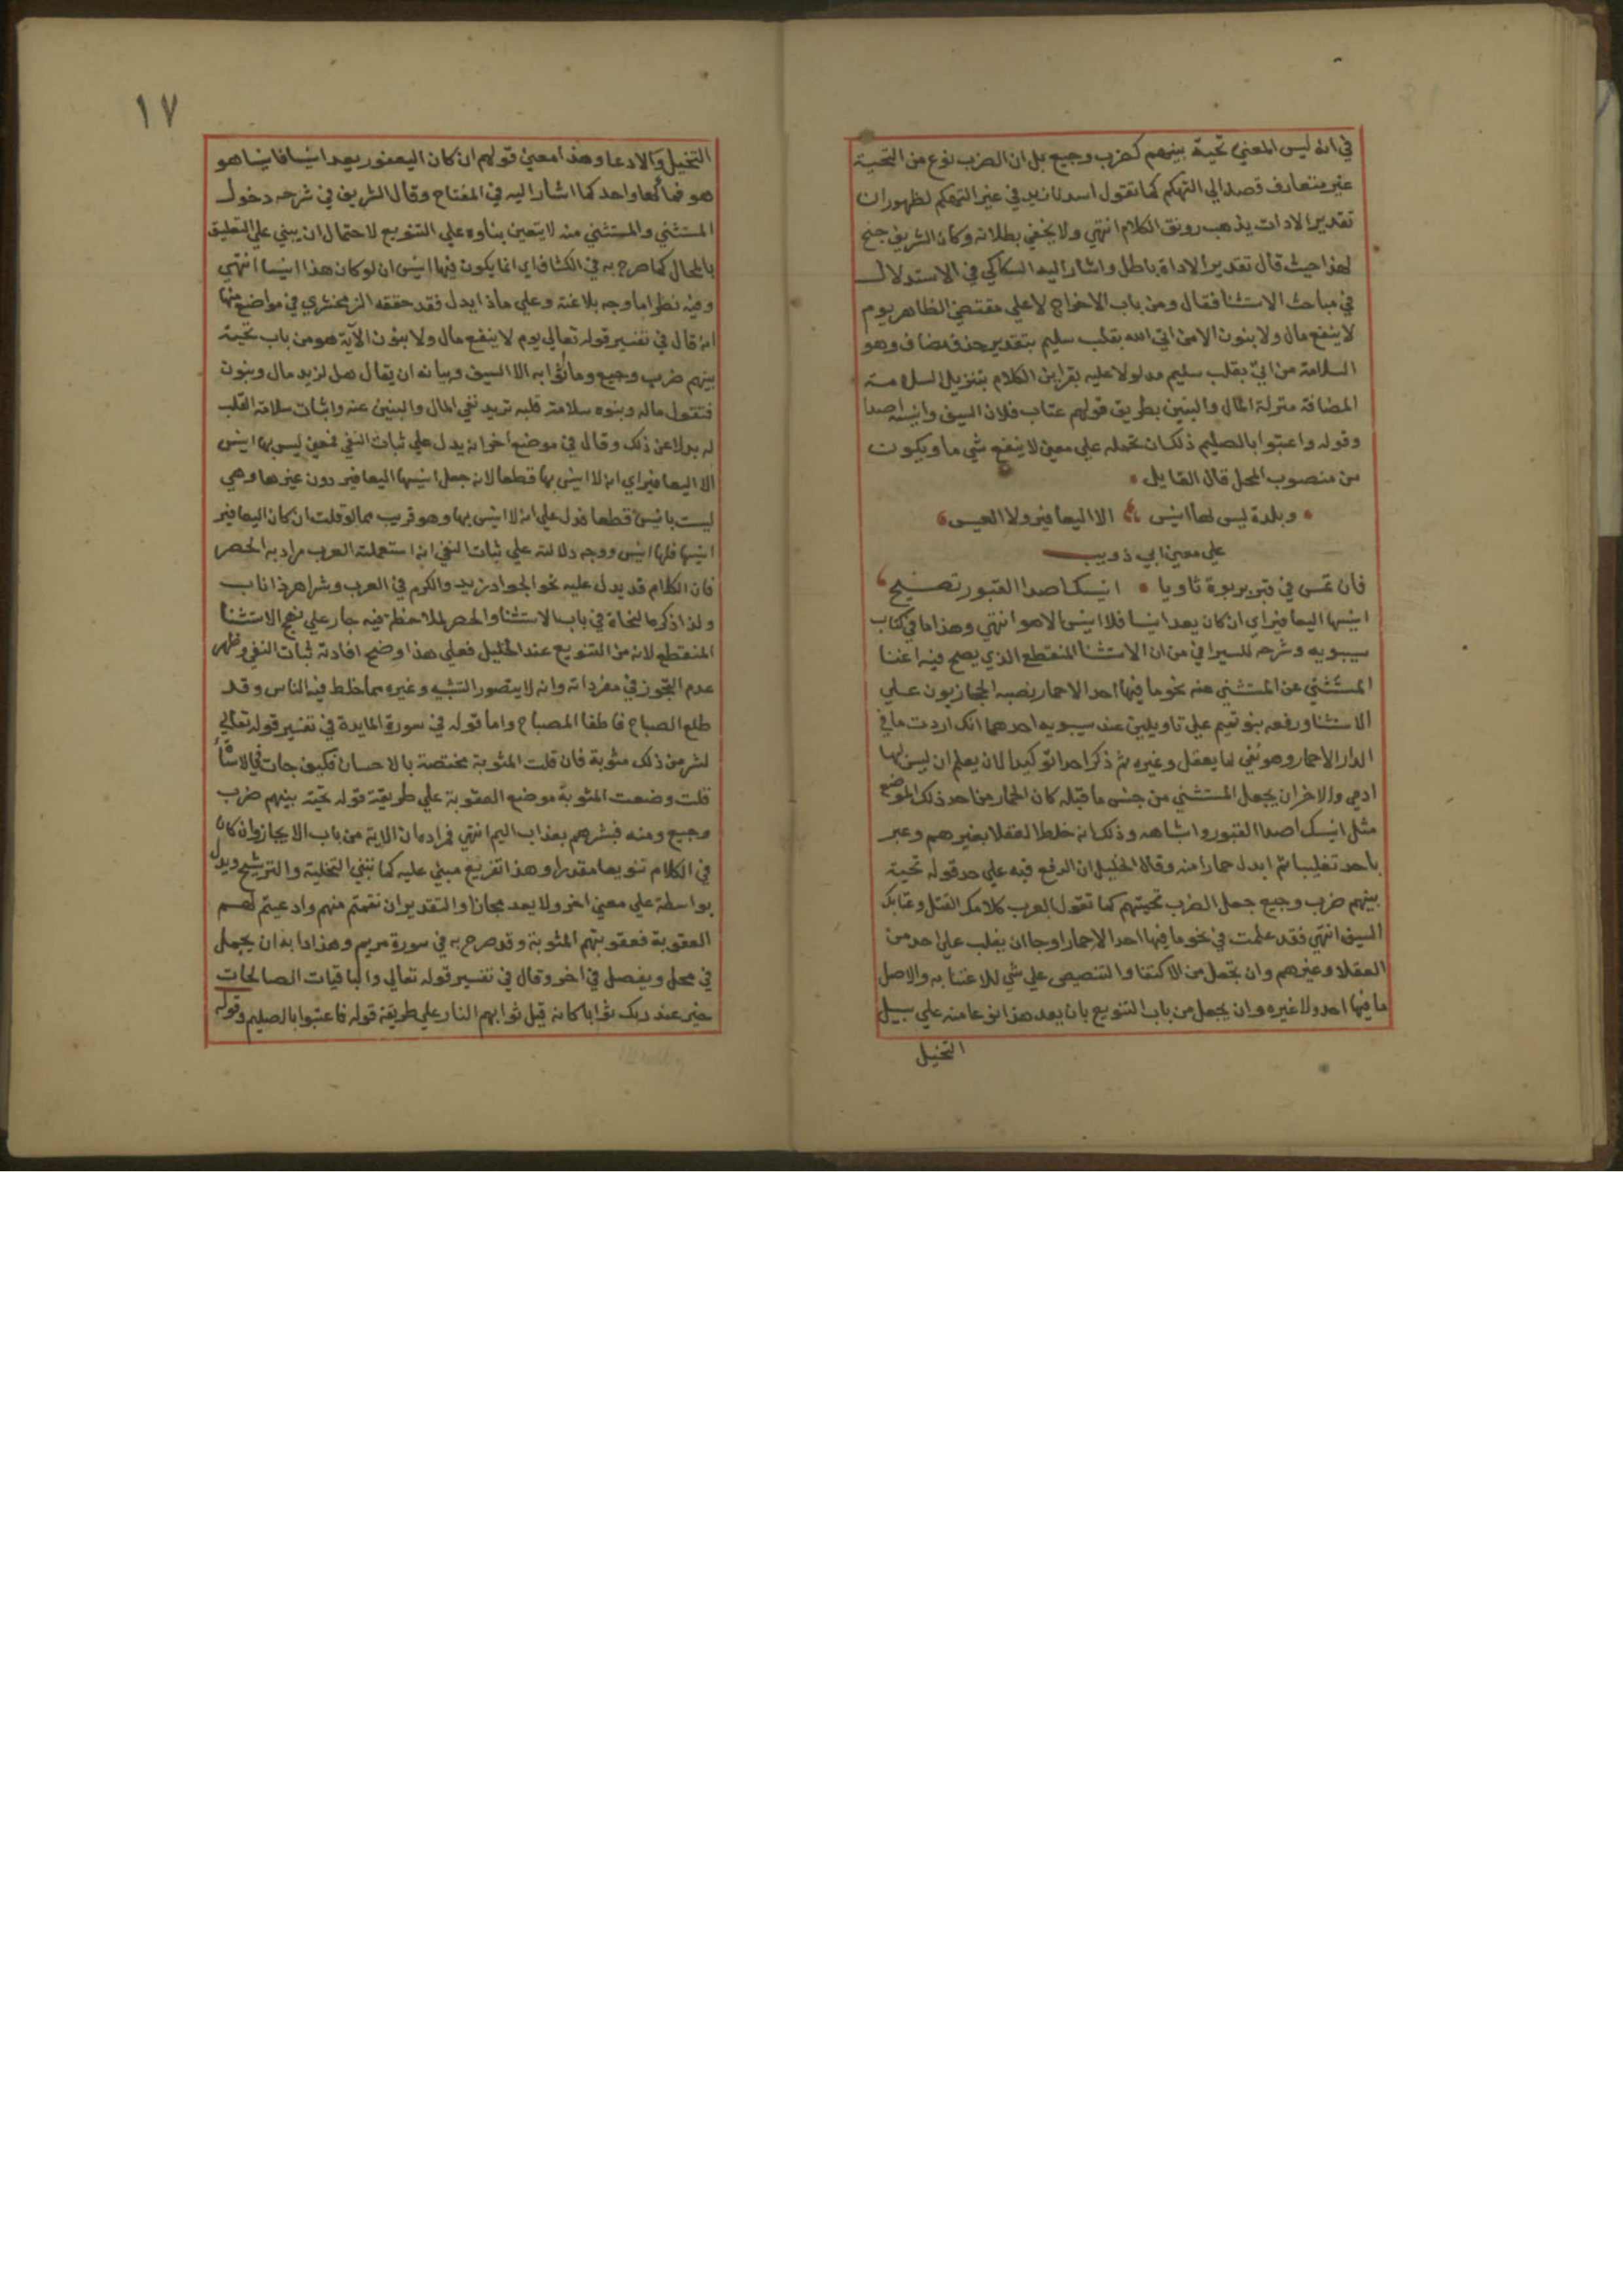 في انه ليس المعني تحية بينهم كضرب وجيع بل ان الضرب نوع من التحية
غير متعارف قصدا الي التهكم كما تقول اسدنا زيد في غير التهكم لظهور ان
تقدير الادات يذهب رونق الكلام انتهي ولا يخفي بطلانه وكان الشريف جنح
لهذا حيث قال تقدير الاداة باطل واشار اليه السكاكي في الاستدلال
في مباحث الاستثنا فقال ومن باب الاخراج لا علي مقتضي الظاهر يوم
لا ينفع مال ولا بنون الا من اتي الله بقلب سليم بتقدير حذف مضاف وهو
السلامة من اتي بقلب سليم مدلولا عليه بقراين الكلام بتنزيل السلامة
المضافة منزلة المال والبنين بطريق قولهم عتاب فلان السيف وانيسه اصدا
وقوله واعتبوا بالصليم ذلك ان تحمله علي معني لا ينفع شي ما ويكون
من منصوب المحل قال القايل
وبلدة ليس لها انيس الا اليعافير ولا العيس
علي معني ابي ذويب
فان تمس في قبر بربوة ثاويا انيسك اصدا القبور تصيح
انيسها اليعافير اي ان كان يعد انيسا فلا انيس الا هو انتهي وهذا ما في كتاب
سيبويه وشرحه للسيرافي من ان الاستثنا المنقطع الذي يصح فيه اغنا
المستثني عن المستثني منه نحو ما فيها احد الا حمار ينصبه الحجازيون علي
الاستثنا ورفعه بنو تميم علي تاويلين عند سيبويه احدهما انك اردت ما في
الدار الا حمار وهو نفي لما يعقل وغيره ثم ذكر احدا توكيدا لان يعلم ان ليس بها
ادمي والاخر ان يجعل المستثني من جنس ما قبله كان الحمار من احد ذلك الموضع
مثل انيسك اصدا القبور واشباهه وذلك انه خلط العقلا بغيرهم وعبر
باحد تغليبا ثم ابدل حمارا منه وقال الخليل ان الرفع فيه علي حد قوله تحية
بينهم ضرب وجيع جعل الضرب تحيتهم كما تقول العرب كلامك القتل وعتابك
السيف انتهي فقد علمت في نحو ما فيها احد الا حمار اوجها ان يغلب علي احد من
العقلا وغيرهم وان تجعل من الاكتفا والتنصيص علي شي للاعتنا به والاصل
ما فيها احد ولا غيره وان يجعل من باب التنويع بان يعد هذا نوعا منه علي سبيل
التخيل
١٧
التخيل والادعا وهذا معني قولهم ان كان اليعفور يعد انيسا فانيسها هو
هو فما كعا واحد كما اشار اليه في المفتاح وقال الشريف في شرحه دخول
المستثني والمستثني منه لا يتعين بناوه علي التنويع لاحتمال ان يبني علي التعليق
بالمحال كما صرح به في الكشاف اي انما يكون فيها انيس ان لو كان هذا انيسا انتهي
وفيه نظر اما وجه بلاغته وعلي ماذا يدل فقد حققه الزمخشري في مواضع منها
انه قال في تفسير قوله تعالي يوم لا ينفع مال ولا بنون الآية هو من باب تحية
بينهم ضرب وجيع وما ثوابه الا السيف وبيانه ان يقال هل لزيد مال وبنون
فتقول ماله وبنوه سلامة قلبه تريد نفي المال والبنين عنه واثبات سلامة القلب
له بدلا عن ذلك وقال في موضع اخر انه يدل علي ثبات النفي فمعني ليس بها انيس
الا اليعافير اي انه لا انيس بها قطعا لانه جعل انيسها اليعافير دون غيرها وهي
ليست بانيس قطعا فدل علي انه لا انيس بها وهو قريب مما لو قلت ان كان اليعافير
انيسها فلها انيس ووجه دلالته علي ثبات النفي انه استعملته العرب مراد به الحصر
فان الكلام قد يدل عليه نحو الجواد زيد والكرم في العرب وشر اهر ذا ناب
ولذا ذكره النحاة في باب الاستثنا والحصر الملاحظ فيه جار علي نهج الاستثنا
المنقطع لانه من التنويع عند الخليل فعلي هذا وضح افادته ثبات النفي وظهر
عدم التجوز في مفرداته وانه لا يتصور التشبيه وغيره مما خلط فيه الناس وقد
طلع الصباح فاطفا المصباح واما قوله في سورة المايدة في تفسير قوله تعالي
لشر من ذلك مثوبة فان قلت المثوبة مختصة بالاحسان فكيف جات في الاساة
قلت وضعت المثوبة موضع العقوبة علي طريقة قوله تحية بينهم ضرب
وجيع ومنه فبشرهم بعذاب اليم انتهي فمراده ان الاية من باب الايجاز وان كان
في الكلام تنويعا مقدرا وهذا تفريع مبني عليه كما تبني التخلية والترشيح ويدل
بواسطة علي معني اخر ولا يعد مجازا والتقدير ان نقمتم منهم وادعيتم لهم
العقوبة فعقوبتهم المثوبة وقد صرح به في سورة مريم وهذا دابه ان يجمل
في محل ويفصل في اخر وقال في تفسير قوله تعالي والباقيات الصالحات
خير عند ربك ثوابا كانه قيل ثوابهم النار علي طريقة قوله فاعتبوا بالصليم وقوله